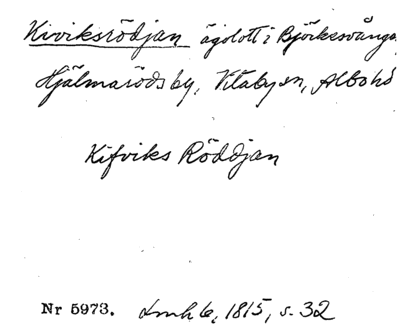 Kiviksrödjan ägolott i Björkesvånga
Hjälmaröds by, Vitaby sn, Albo hd
Kifviks Röddjan
Nr 5973. Lmh 6, 1815, s. 32